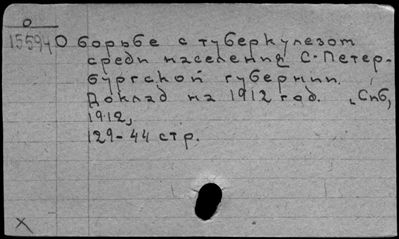 О
15594 О борьбе с туберкулезом
среди населения С-Петер-
бургской губернии.
Доклад на 1912 год. „Спб,
1912,
129-44 стр.
X